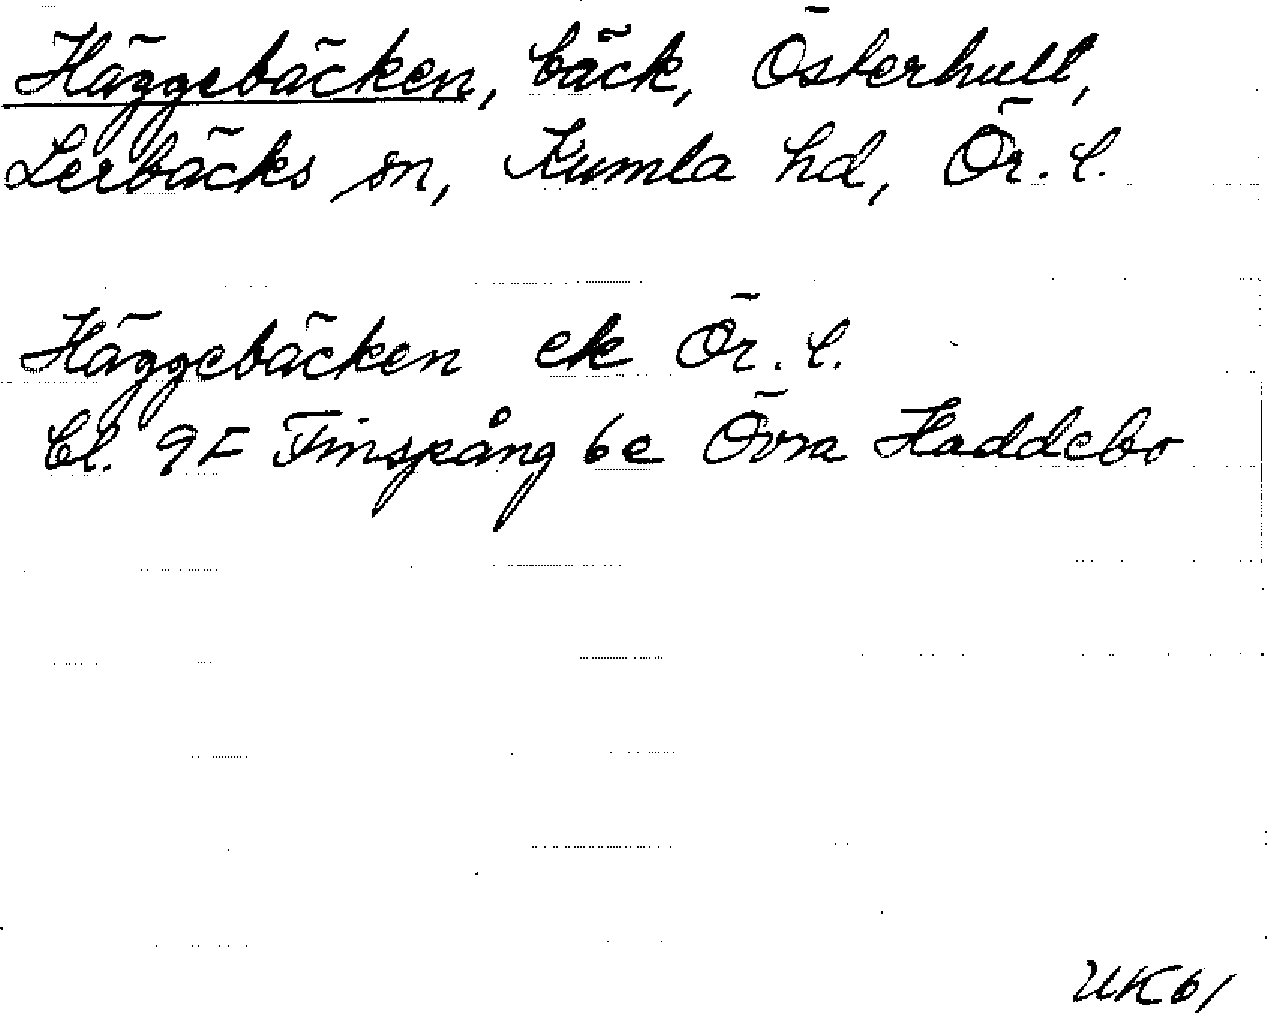 Häggebäcken, bäck, Österhult,
Lerbäcks sn, Kumla hd, Ör. l.
Häggebäcken ek Ör. l.
bl. 9F Finspång 6c Övra Haddebo
UK61